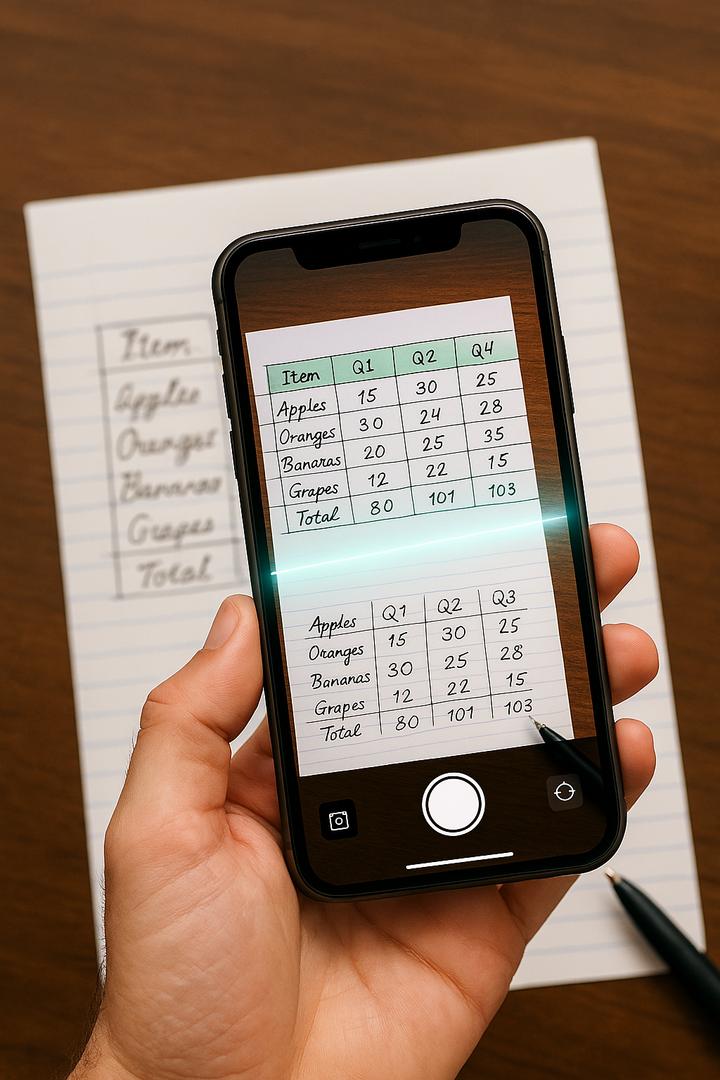 Item
Apples
Oranges
Bananas
Grapes
Total
Item Q1 Q2 Q4
Apples 15 30 25
Oranges 30 24 28
Bananas 20 25 35
Grapes 12 22 15
Total 80 101 103
Apples Q1 Q2 Q3
Oranges 15 30 25
Bananas 30 25 28
Grapes 12 22 15
Total 80 101 103